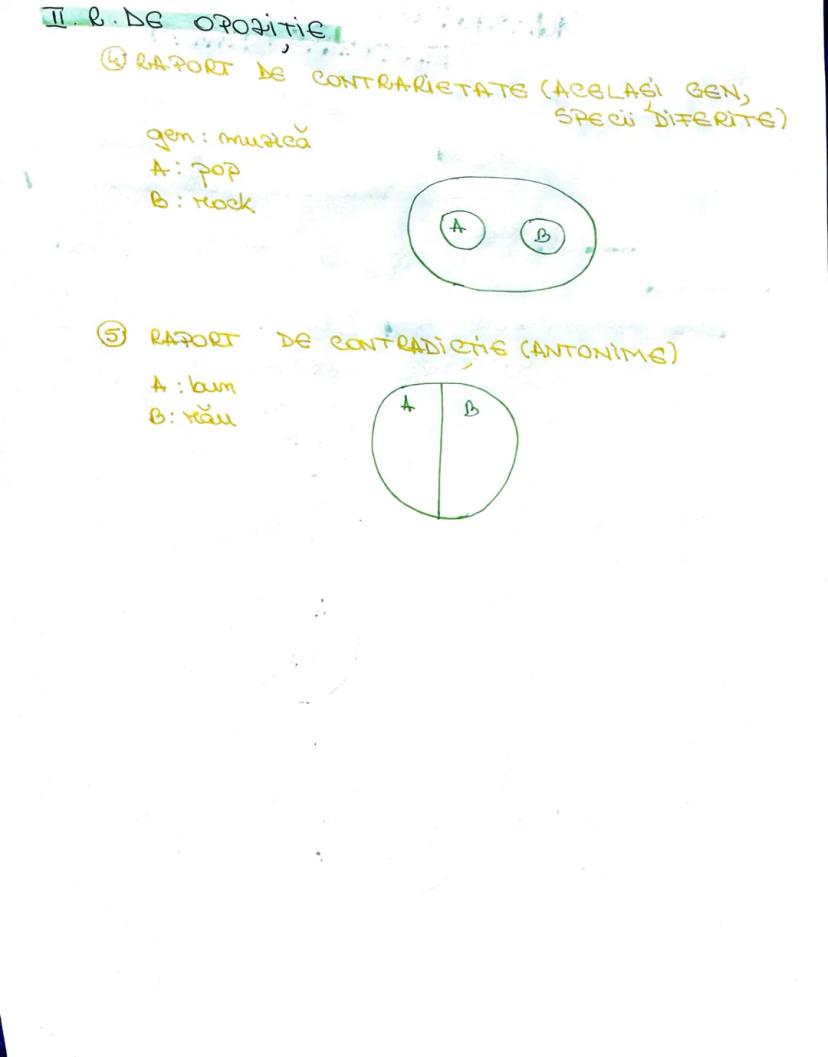 II. R. DE OPOZIȚIE
④ RAPORT DE CONTRARIETATE (ACELAȘI GEN,
SPECII DIFERITE)
gen: muzică
A: pop
B: rock
A B
⑤ RAPORT DE CONTRADICȚIE (ANTONIME)
A: bun
B: rău
A B